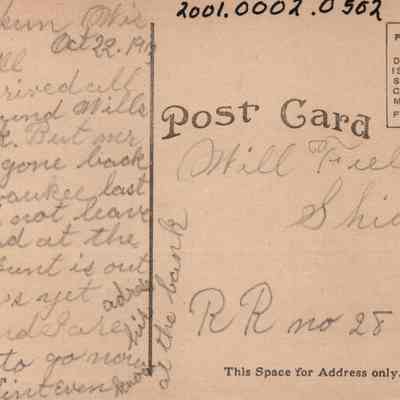 2001.0002.0562
kun Wis
Oct 22. 191
ll
rived all
ound Wills
t. But mr
gone back
waukee last
not leave
d at the
ount is out
s yet
to go now
even
adress
his
at the bank
Post Card
Will Fiel
Shio
RR no 28
This Space for Address only.
P
D
IS
S
C
M
F